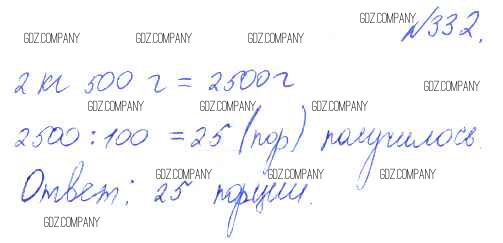 №332.
GDZ.COMPANY GDZ.COMPANY GDZ.COMPANY GDZ.COMPANY
2 кг 500 г = 2500 г
GDZ.COMPANY
GDZ.COMPANY GDZ.COMPANY GDZ.COMPANY
2500 : 100 = 25 (пор) получилось.
GDZ.COMPANY GDZ.COMPANY GDZ.COMPANY
Ответ: 25 порции.
GDZ.COMPANY